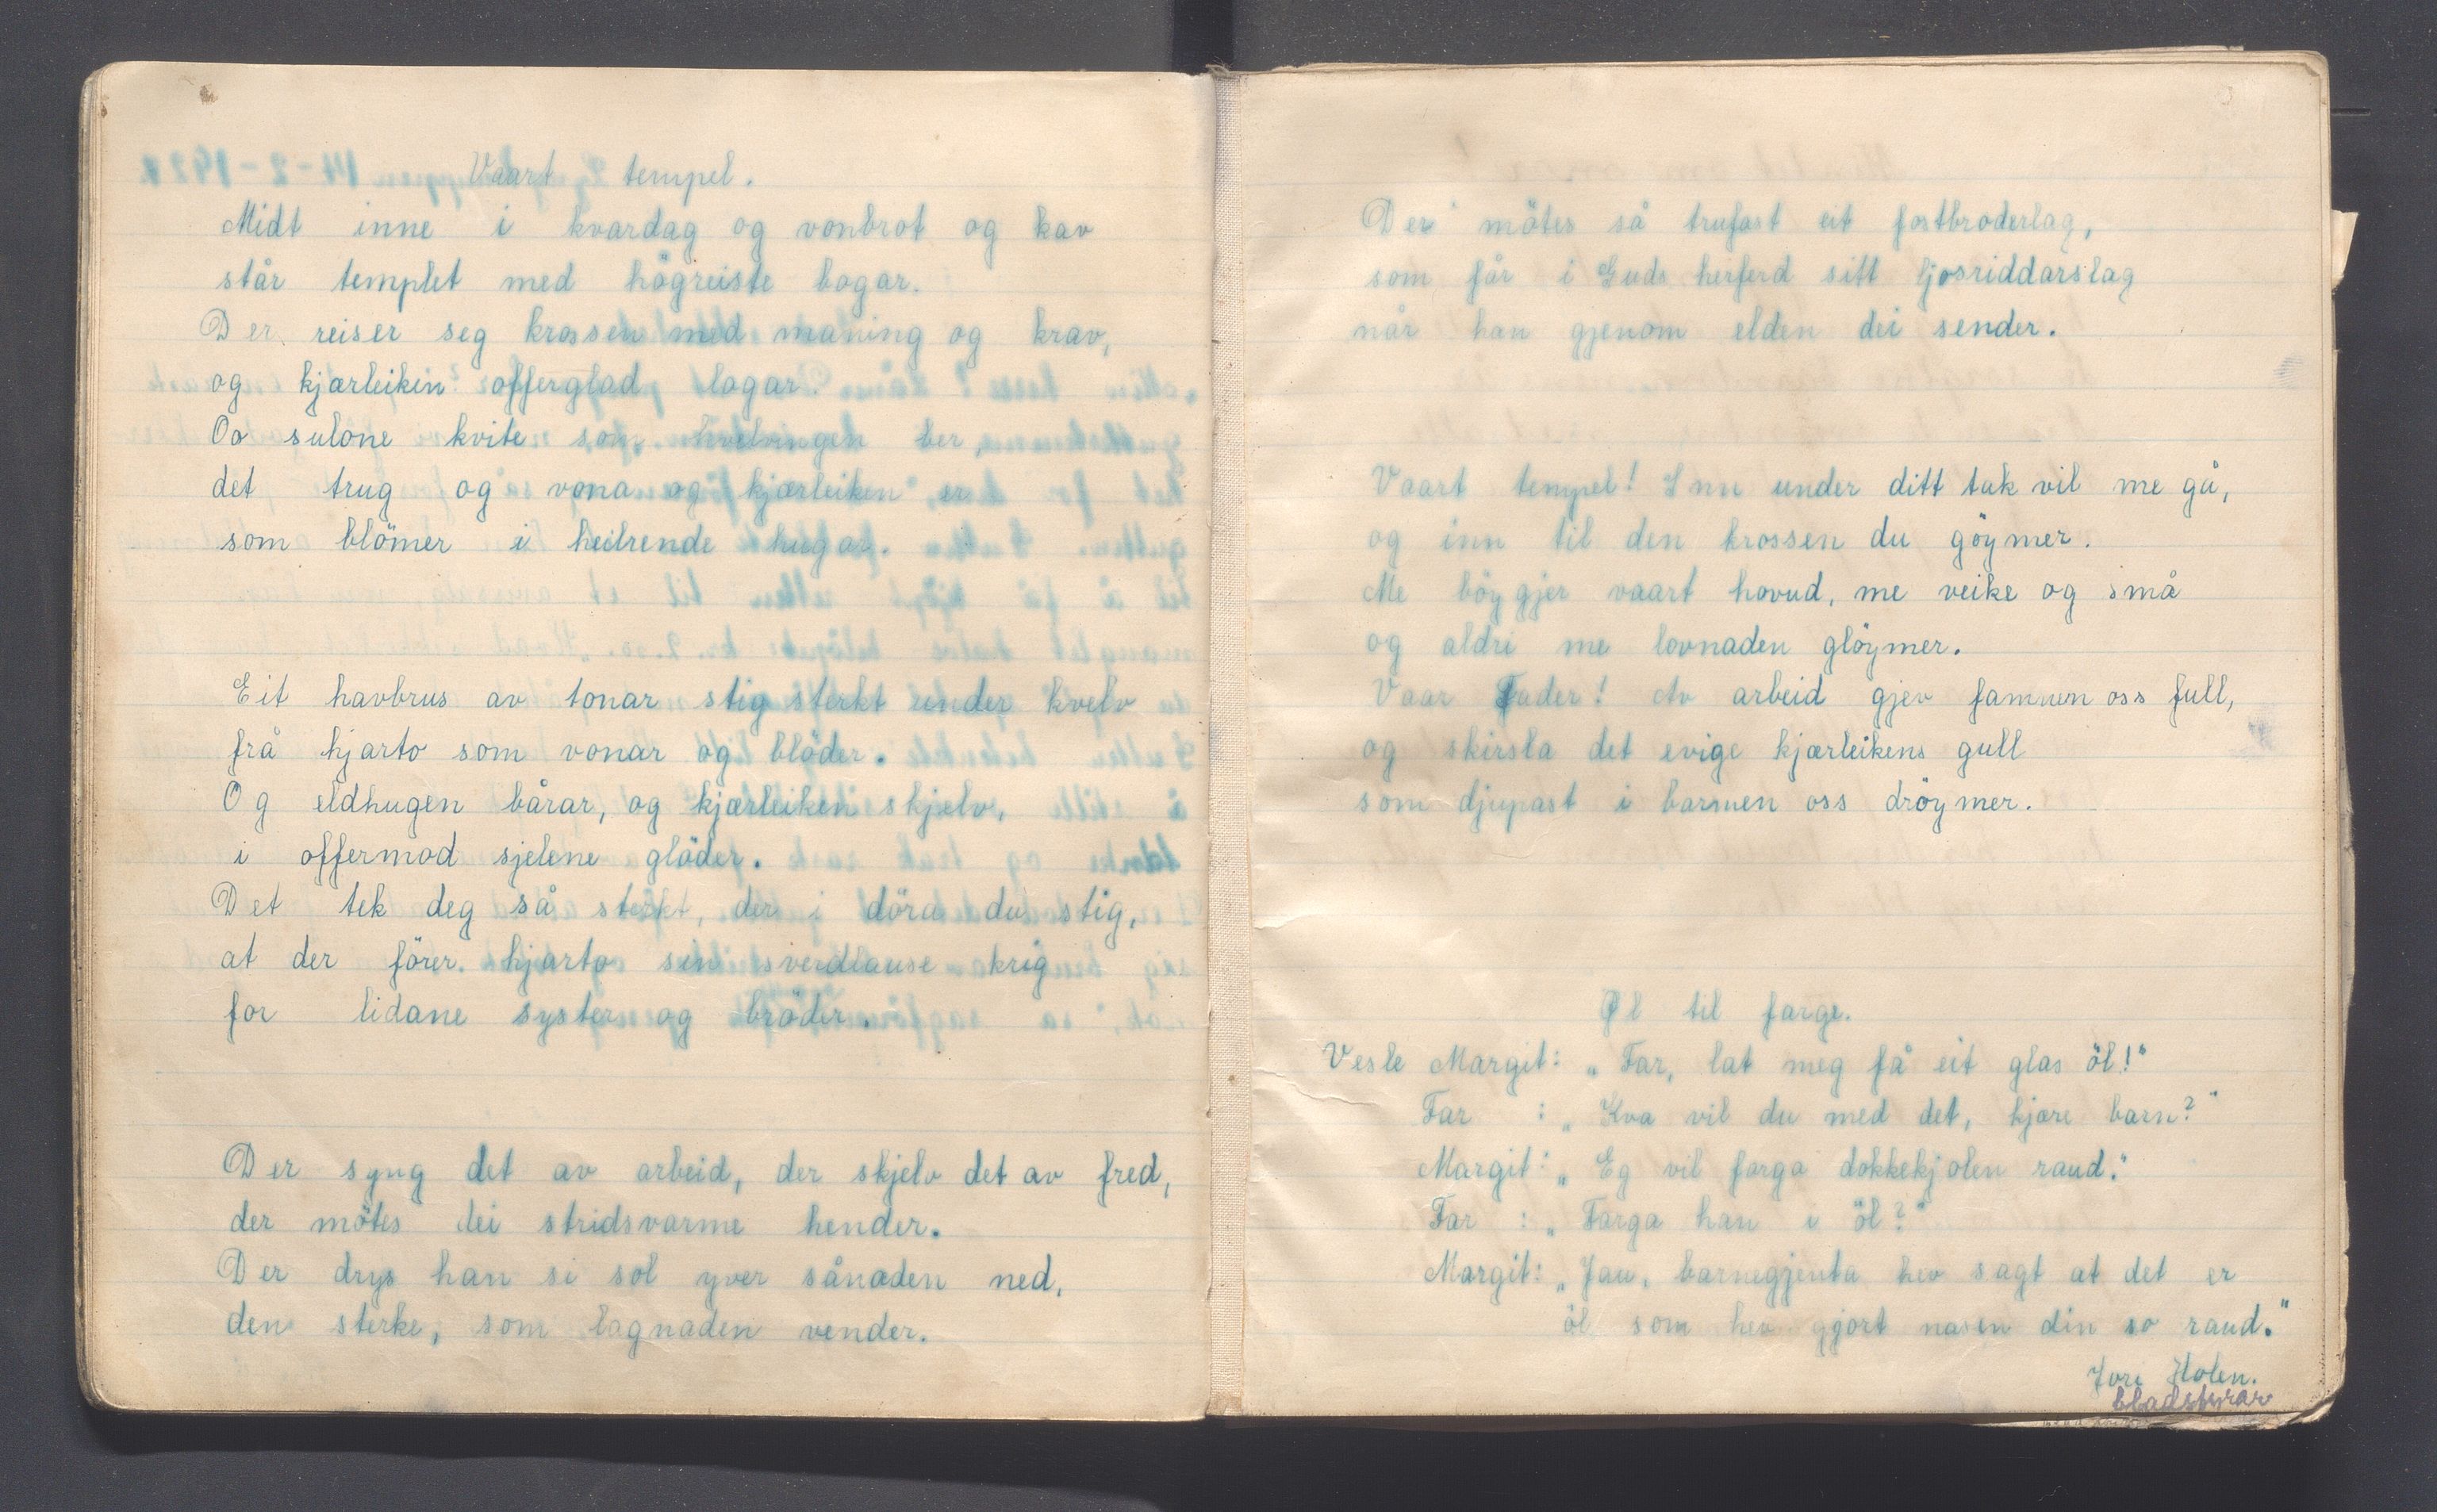 Vaart tempel.
Midt inne i kvardag og vonbrot og kav
står templet med högreiste bogar.
Der reiser seg krossen med maning og krav,
og kjærleikin offerglad logar.
Oo sulone kvite som hvelvingen ber
det trug og vona og kjærleiken er
som blömer i heilrende hugar.
Eit havbrus av tonar stig sterkt under kvelv
frå hjarto som vonar og blöder.
Og eldhugen bårar, og kjærleiken skjelv,
i offermod sjelene glöder.
Det tek deg så sterkt, der i döra du stig,
at der förer hjarto sin sverdlause krig
for lidane syster og bröder.
Der syng det av arbeid, der skjelv det av fred,
der mötes dei stridsvarme hender.
Der drys han si sol yver sånaden ned,
den sterke, som lagnaden vender.
Der mötes så trufast eit fostbroderlag,
som får i Guds herferd sitt ljosriddarslag
når han gjenom elden dei sender.
Vaart tempel! Inn under ditt tak vil me gå,
og inn til den krossen du göymer.
Me böygjer vaart hovud, me veike og små
og aldri me lovnaden glöymer.
Vaar Fader! Av arbeid gjev famnen oss full,
og skirsla det evige kjærleikens gull
som djupast i barmen oss dröymer.
Øl til farge.
Vesle Margit: „Far, lat meg få eit glas öl!"
Far : „Kva vil du med det, kjære barn?"
Margit: „Eg vil farga dokkekjolen raud."
Far : „Farga han i öl?"
Margit: „Jau, barnegjenta hev sagt at det er
öl som hev gjort nasen din so raud."
Jore Holen.
bladstyrar